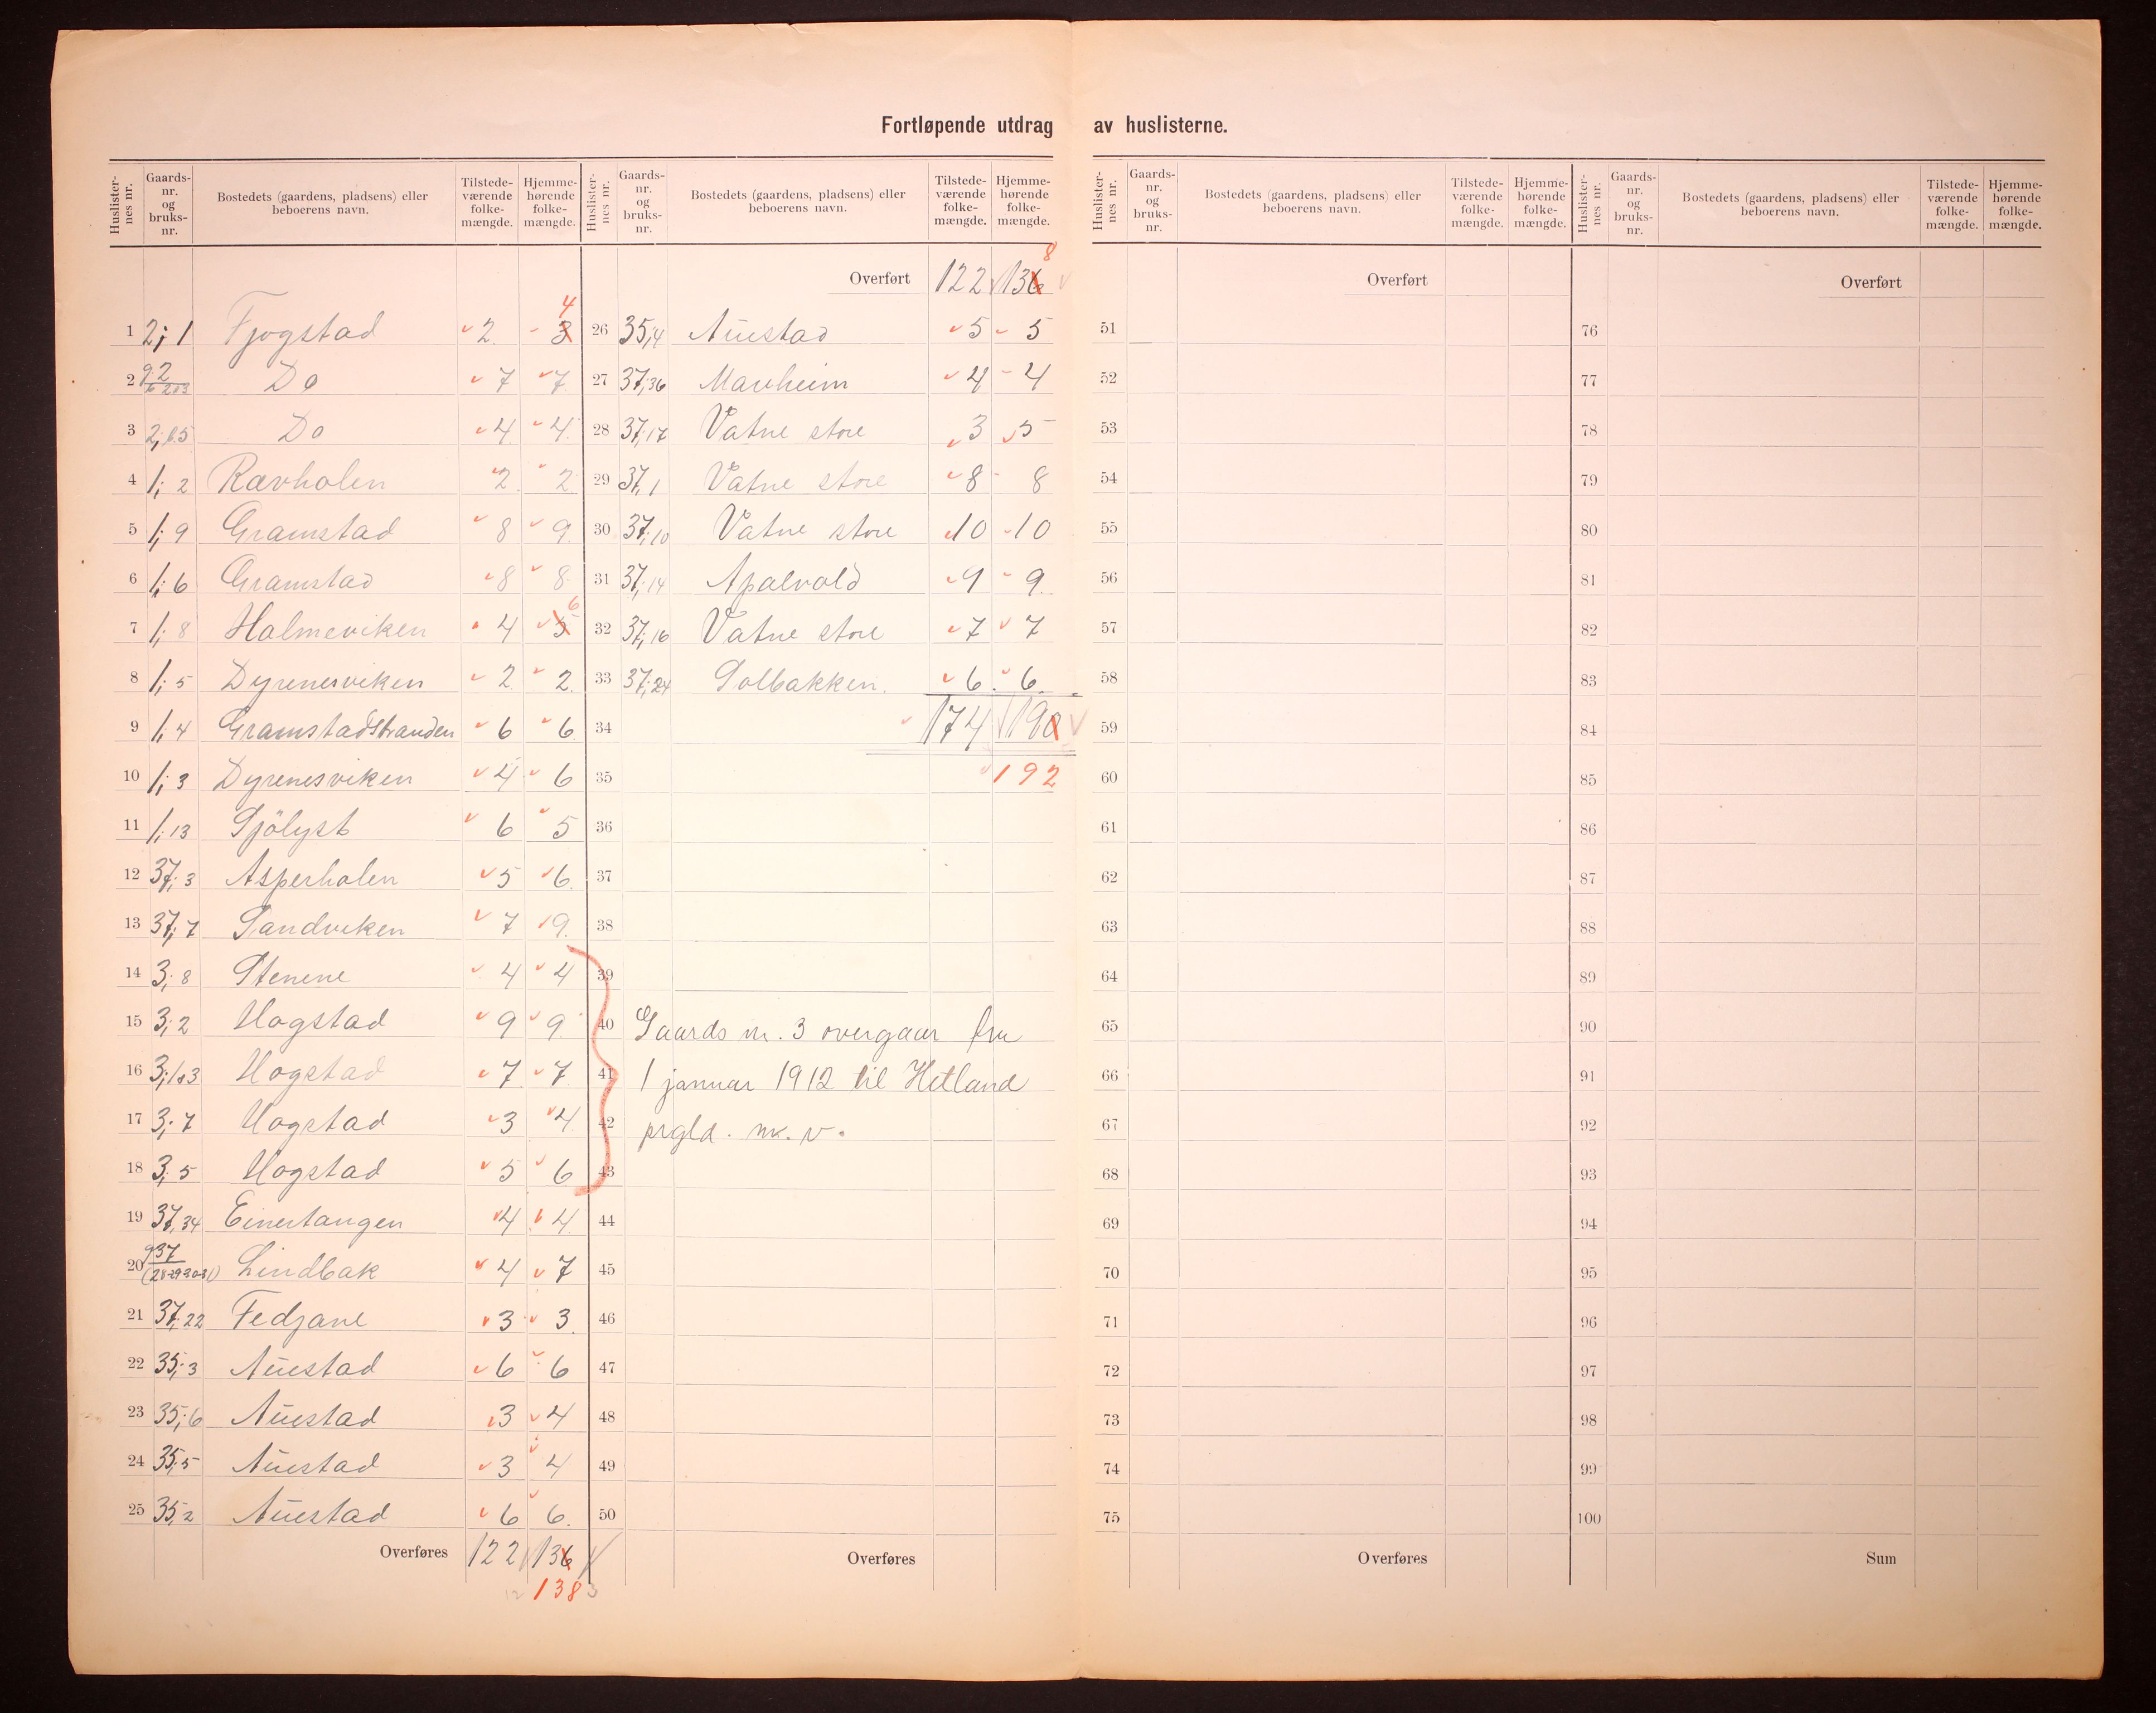 Fortløpende utdrag av huslisterne.
Huslisternes nr. Gaards-nr. og bruks-nr. Bostedets (gaardens, pladsens) eller beboerens navn. Tilstedeværende folkemængde. Hjemmehørende folkemængde.
1 2;1 Fjogstad 2 3 4
2 g. 2 Do 7 7
3 Do 4 4
4 1; 2 Ravholen 2 2
5 1; 9 Gramstad 8 9
6 1; 6 Gramstad 8 8
7 1; 8 Holmeviken 4 5 6
8 1; 5 Dyrenesviken 2 2
9 1; 4 Gramstadstranden 6 6
10 1; 3 Dyrenesviken 4 6
11 1; 13 Sjölyst 6 5
12 37; 3 Asperholen 5 6
13 37; 7 Sandviken 7 9
14 3; 8 Stenene 4 4
15 3; 2 Hogstad 9 9
16 3; Hogstad 7 7
17 3; 7 Hogstad 3 4
18 3; 5 Hogstad 5 6
19 37, 34 Einertangen 4 4
20 g 37 Lindbak 4 7
21 37, 22 Fedjane 3 3
22 35; 3 Auestad 6 6
23 35; 6 Auestad 3 4
24 35; 5 Auestad 3 4
25 35; 2 Auestad 6 6.
Overføres 122 136
138
Huslisternes nr. Gaards-nr. og bruks-nr. Bostedets (gaardens, pladsens) eller beboerens navn. Tilstedeværende folkemængde. Hjemmehørende folkemængde.
Overført 122 136 8
26 35;4 Auestad 5 5
27 37;36 Marheim 4 4
28 37;17 Vatne store 3 5
29 37, 1 Vatne store 8 8
30 37;10 Vatne store 10 10
31 37;14 Apalvold 9 9
32 37;16 Vatne store 7 7
33 37;24 Solbakken. 6 6
34 174 190
35 192
36
37
38
39
40 Gaards nr. 3 overgaar fra
41 1 januar 1912 til Hetland
42 prgld. nk. v.
43
44
45
46
47
48
49
50
Overføres
Huslisternes nr. Gaards-nr. og bruks-nr. Bostedets (gaardens, pladsens) eller beboerens navn. Tilstedeværende folkemængde. Hjemmehørende folkemængde.
Overført
51
52
53
54
55
56
57
58
59
60
61
62
63
64
65
66
67
68
69
70
71
72
73
74
75
Overføres
Huslisternes nr. Gaards-nr. og bruks-nr. Bostedets (gaardens, pladsens) eller beboerens navn. Tilstedeværende folkemængde. Hjemmehørende folkemængde.
Overført
76
77
78
79
80
81
82
83
84
85
86
87
88
89
90
91
92
93
94
95
96
97
98
99
100
Sum